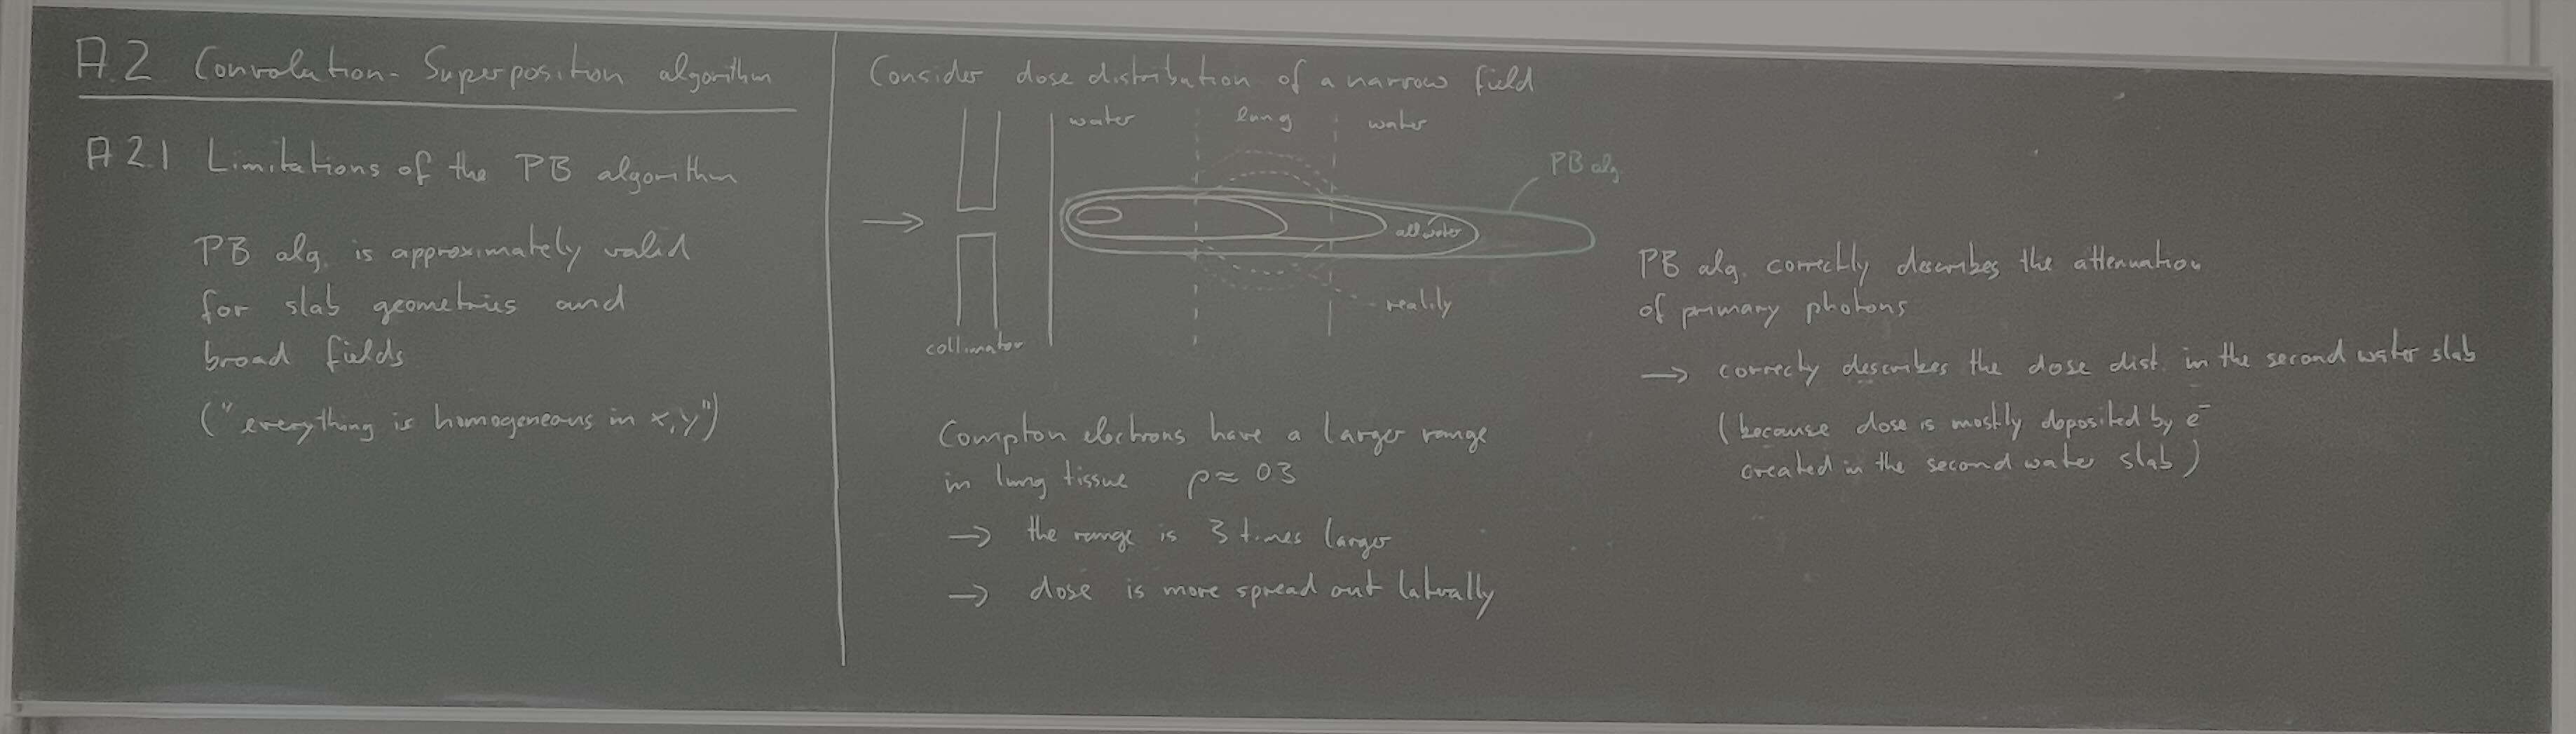 A.2 Convolution-Superposition algorithm
A 2.1 Limitations of the PB algorithm
PB alg. is approximately valid
for slab geometries and
broad fields
("everything is homogeneous in x,y")
Consider dose distribution of a narrow field
water lung water
PB alg.
all water
reality
collimator
Compton electrons have a larger range
in lung tissue ρ ≈ 0.3
→ the range is 3 times larger
→ dose is more spread out laterally
PB alg. correctly describes the attenuation
of primary photons
→ correcty describes the dose dist. in the second water slab
(because dose is mostly deposited by e⁻
created in the second water slab)